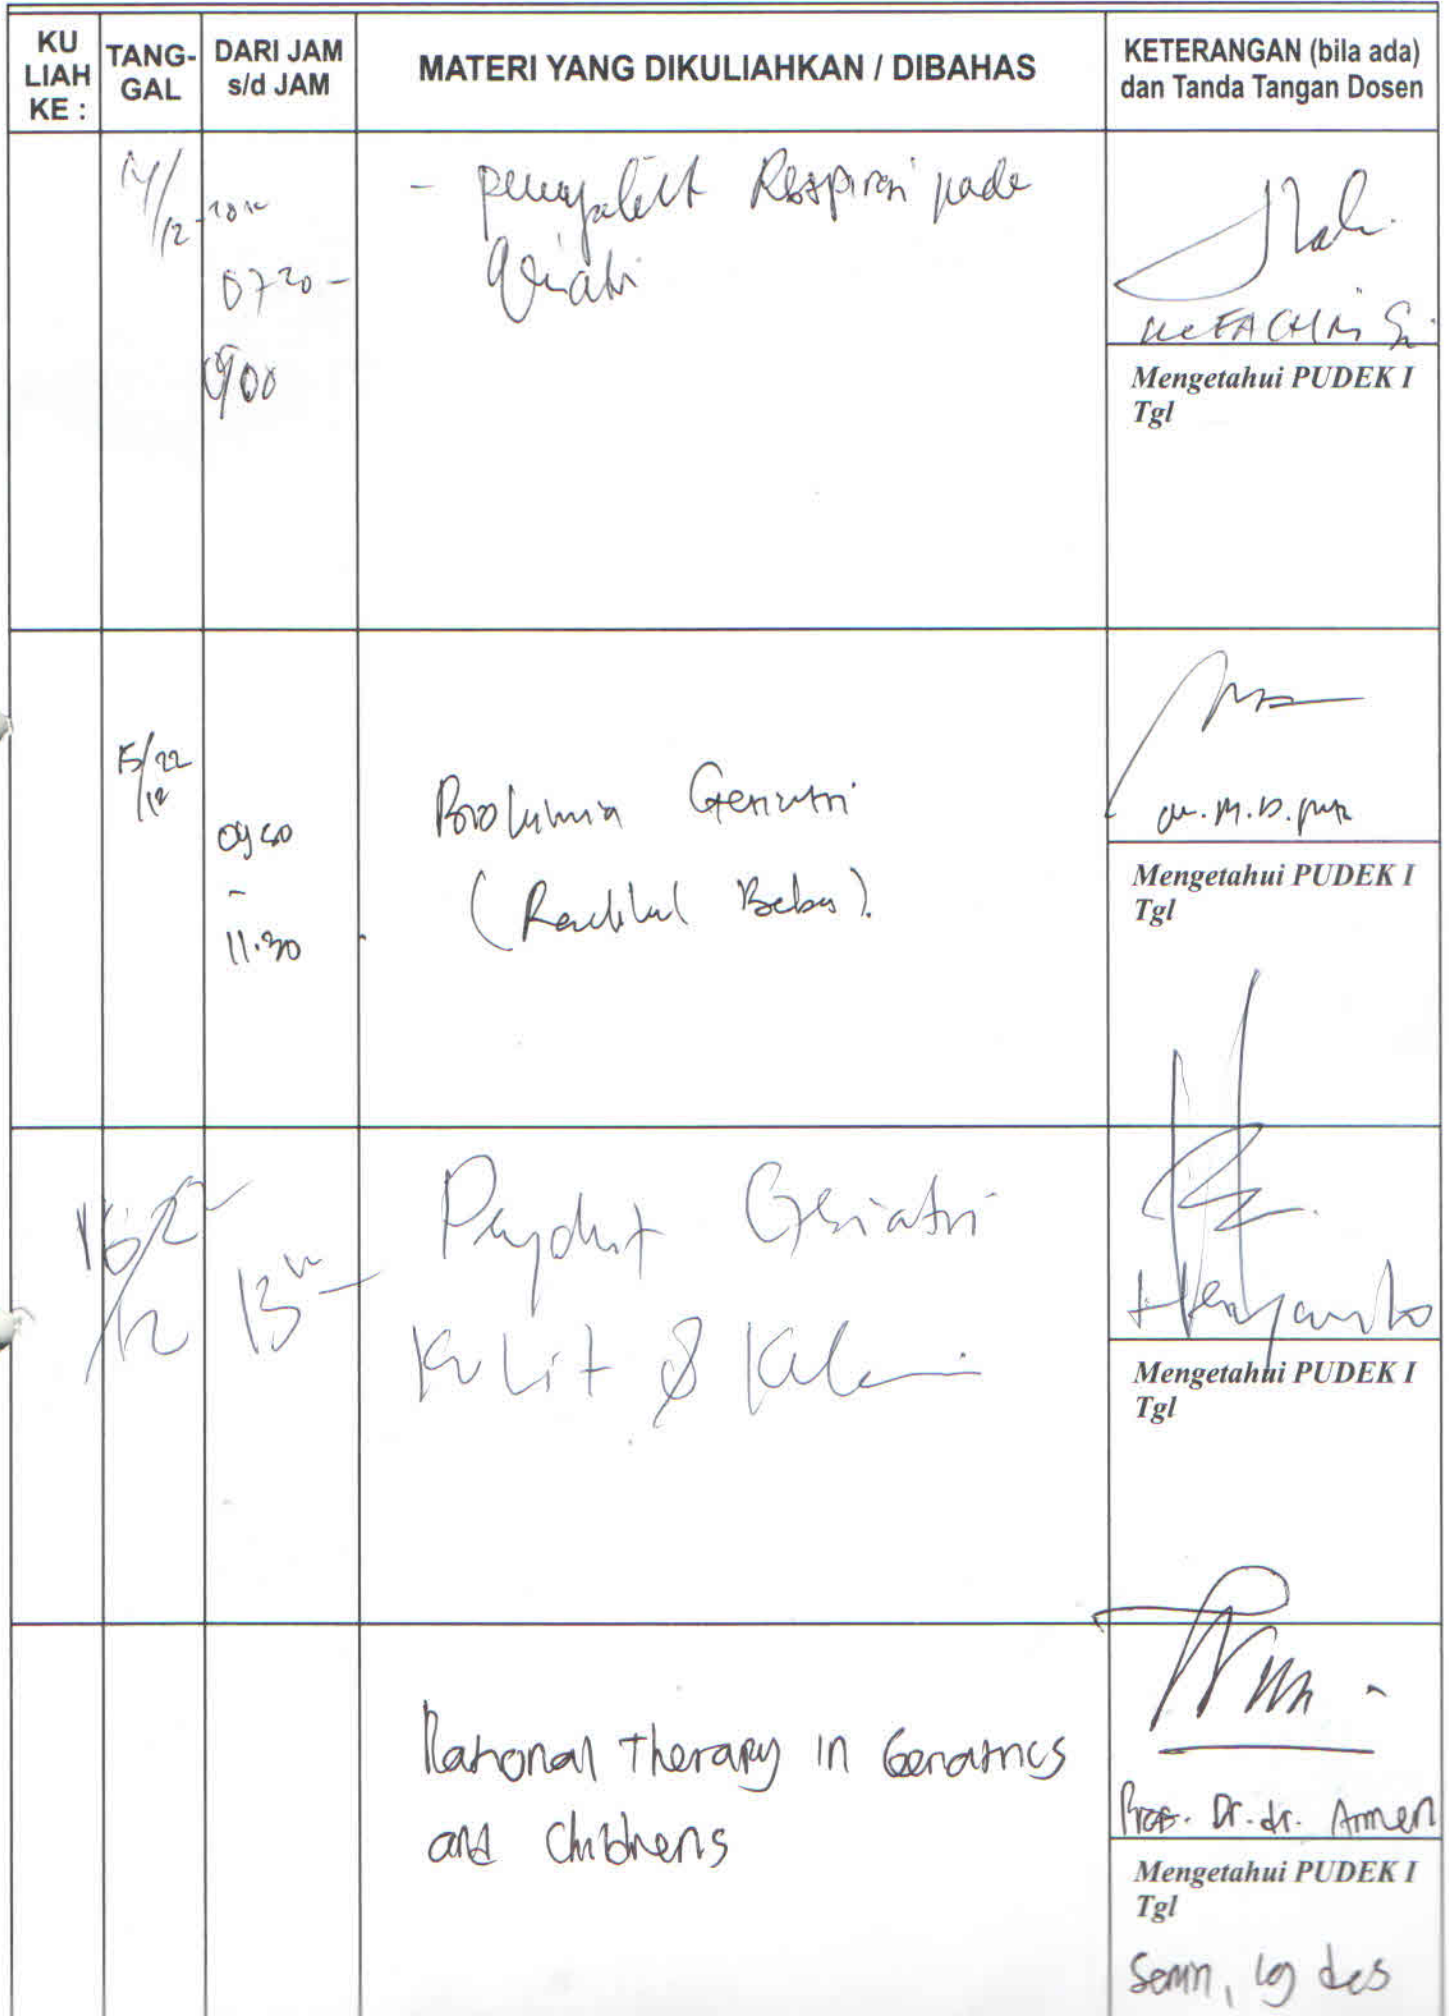 KU LIAH KE :
TANG-GAL
DARI JAM s/d JAM
MATERI YANG DIKULIAHKAN / DIBAHAS
KETERANGAN (bila ada) dan Tanda Tangan Dosen
14/12
- penyakit Respirasi pada
Geriatri
0720 -
0900
Mengetahui PUDEK I
Tgl
15/22
12
0940
-
11.30
Biokimia Geriatri
(Radikal Bebas).
Mengetahui PUDEK I
Tgl
16/22
12
13
Penyakit Geriatri
Kulit & Kelamin
Heryanto
Mengetahui PUDEK I
Tgl
Rational Therapy in Geriatrics
and Childrens
Prof. Dr. dr. Armen
Mengetahui PUDEK I
Tgl
Senin, 19 des